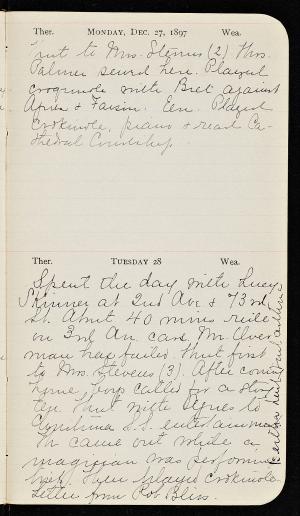 Ther. MONDAY, DEC. 27, 1897 Wea.
to Mrs. Stevens (2) Mrs.
Palmer sewed here. Played
croquinole with Bret against
Agnes & Eve. Played
Crokinole, piano & read Ca-
thedral Courtship.
Ther. TUESDAY 28 Wea.
Spent the day with Lucy
Skinner at 2nd Ave & 73rd
St. About 40 mins ride
on 3rd Av. car. Mr.
man has failed. Went first
to Mrs. Stevens (3). After coming
home boys called for a
Went with Agnes to
S.S. entertainment
came out while a
magician was performing
Then played crokinole
Letter from Rob Bliss.